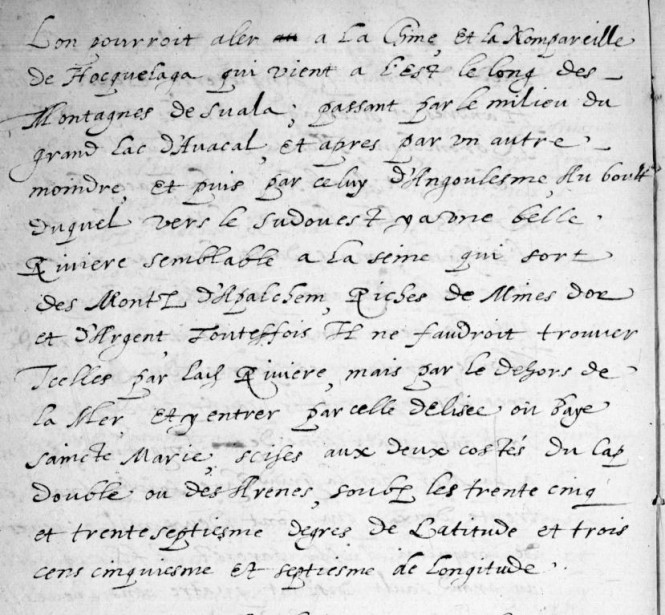 Lon pourroit aler a la Chine, et la Nompareille
de Hocquelaga qui vient a l'Est le long des
Montagnes de Suala, passant par le milieu du
grand lac d'Avacal, et apres par un autre
moindre, et puis par celuy d'Angoulesme, Au boult
duquel vers le sudouest y a une belle
Riviere semblable a la seine qui sort
des Montz d'Apalchem, Riches de Mines dor
et d'Argent Touteffois Il ne faudroit trouver
Icelles par Riviere, mais par le dehors de
la Mer, et y entrer par celle d'Elisee ou baye
saincte Marie, scises aux deux costés du Cap
double ou des Arenes, soubz les trente cinq
et trente septiesme degres de Latitude et trois
cens cinquiesme et septiesme de longitude.